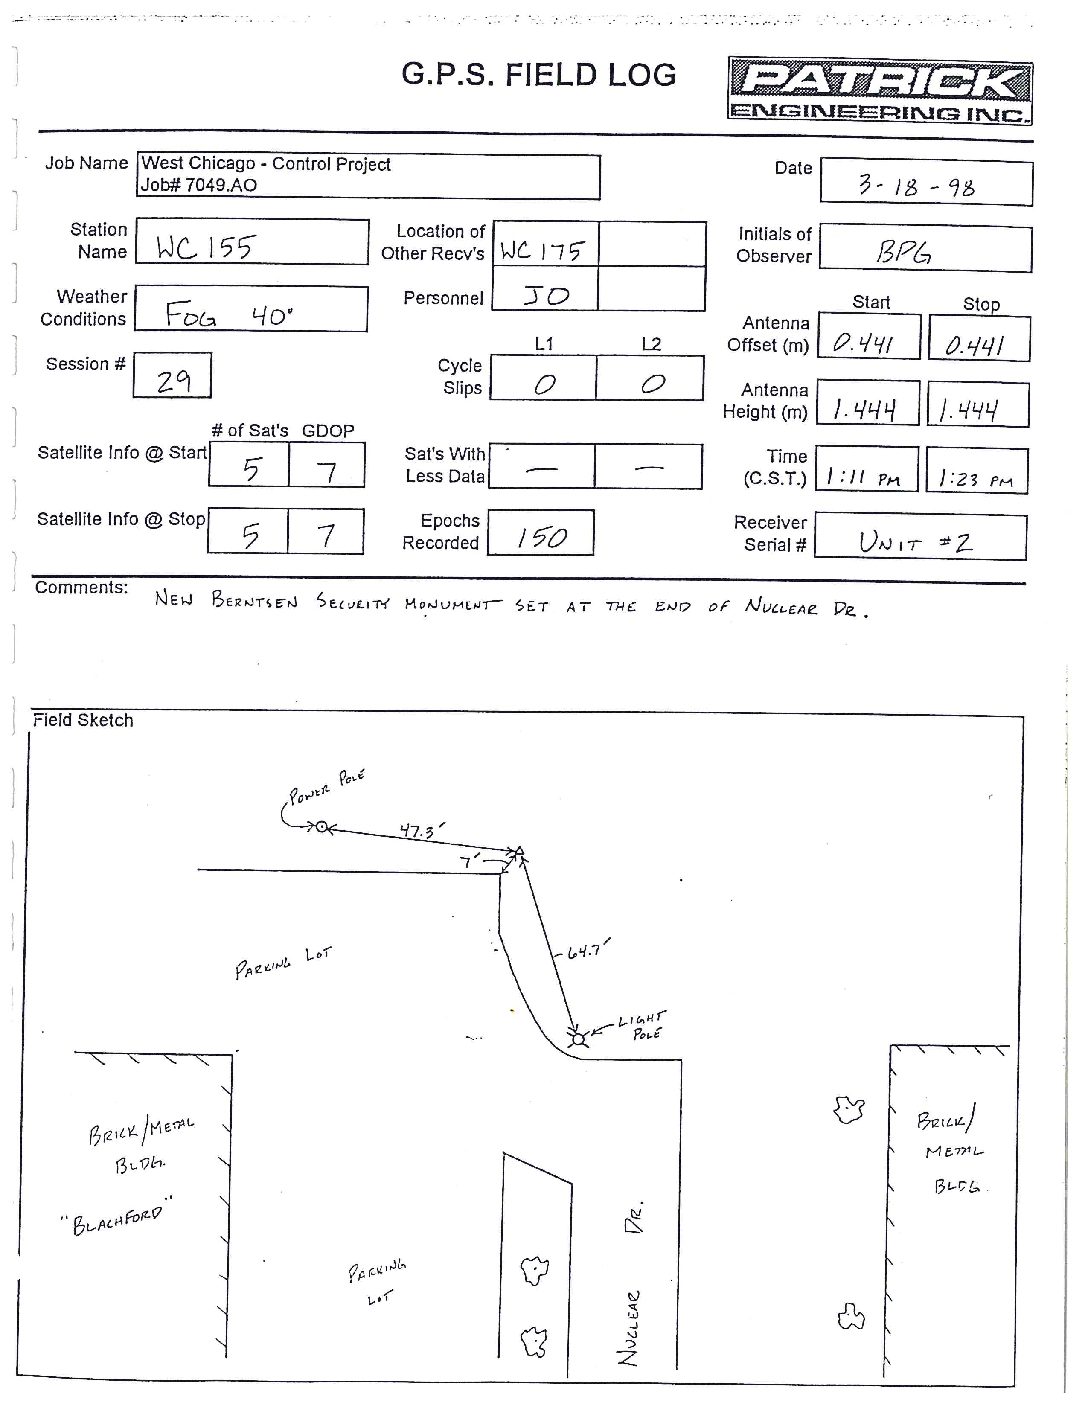 G.P.S. FIELD LOG
PATRICK
ENGINEERING INC.
Job Name West Chicago - Control Project
Job# 7049.AO
Date 3-18-98
Station Name WC 155
Location of Other Recv's WC 175
Initials of Observer BPG
Weather Conditions FOG 40°
Personnel JO
Start Stop
Antenna Offset (m) 0.441 0.441
Session # 29
L1 L2
Cycle Slips 0 0
Antenna Height (m) 1.444 1.444
# of Sat's GDOP
Satellite Info @ Start 5 7
Sat's With Less Data — —
Time (C.S.T.) 1:11 PM 1:23 PM
Satellite Info @ Stop 5 7
Epochs Recorded 150
Receiver Serial # UNIT #2
Comments: NEW BERNTSEN SECURITY MONUMENT SET AT THE END OF NUCLEAR DR.
Field Sketch
POWER POLE
47.3'
7'
64.7'
PARKING LOT
LIGHT
POLE
BRICK/METAL
BLDG.
"BLACHFORD"
BRICK/
METAL
BLDG.
PARKING
LOT
NUCLEAR DR.